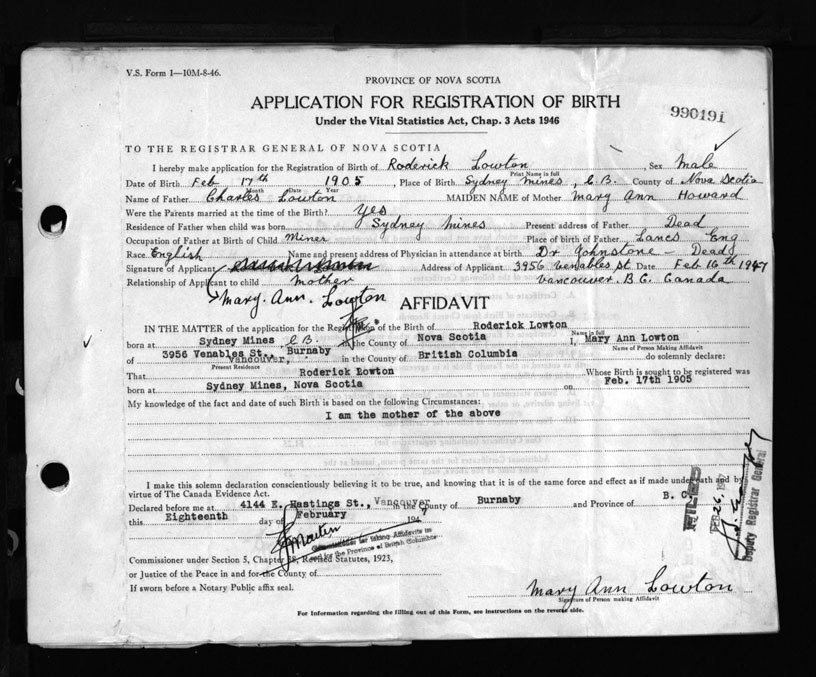 V.S. Form 1—10M-8-46.
PROVINCE OF NOVA SCOTIA
APPLICATION FOR REGISTRATION OF BIRTH
990191
Under the Vital Statistics Act, Chap. 3 Acts 1946
TO THE REGISTRAR GENERAL OF NOVA SCOTIA
I hereby make application for the Registration of Birth of Roderick Lowton Sex Male
Print Name in full
Date of Birth Feb 17th 1905, Place of Birth Sydney Mines, C.B. County of Nova Scotia
Month Date Year
Name of Father Charles Lowton MAIDEN NAME of Mother Mary Ann Howard
Were the Parents married at the time of the Birth? Yes
Residence of Father when child was born Sydney Mines Present address of Father Dead
Occupation of Father at Birth of Child Miner Place of birth of Father Lancs Eng
Race English Name and present address of Physician in attendance at birth Dr Johnstone - Dead
Signature of Applicant Address of Applicant 3956 Venables St. Date Feb 16th 1947
Relationship of Applicant to child mother Vancouver. B.C. Canada
Mary. Ann. Lowton
AFFIDAVIT
IN THE MATTER of the application for the Registration of the Birth of Roderick Lowton
Name in full
born at Sydney Mines, C.B. in the County of Nova Scotia I, Mary Ann Lowton
Name of Person Making Affidavit
of 3956 Venables St., Vancouver, Burnaby in the County of British Columbia do solemnly declare:
Present Residence
That Roderick Lowton Whose Birth is sought to be registered was
born at Sydney Mines, Nova Scotia on Feb. 17th 1905
My knowledge of the fact and date of such Birth is based on the following Circumstances:
I am the mother of the above
I make this solemn declaration conscientiously believing it to be true, and knowing that it is of the same force and effect as if made under oath and by
virtue of The Canada Evidence Act.
Declared before me at 4144 E. Hastings St., Vancouver in the County of Burnaby and Province of B. C.
this Eighteenth day of February 1947
Commissioner for taking Affidavits in
and for the Province of British Columbia
Commissioner under Section 5, Chapter 38, Revised Statutes, 1923,
or Justice of the Peace in and for the County of
If sworn before a Notary Public affix seal.
Mary Ann Lowton
Signature of Person making Affidavit
For Information regarding the filling out of this Form, see instructions on the reverse side.
FILED
FEB 26, 1947
Deputy Registrar General